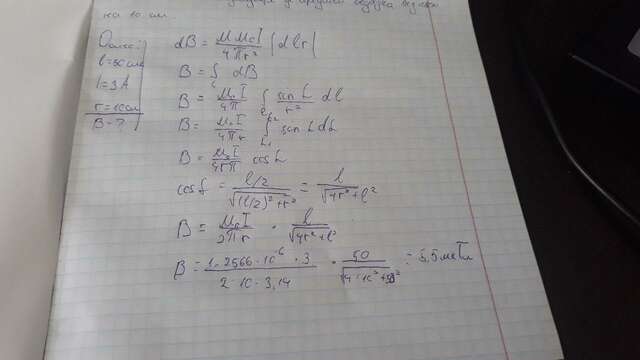 на 10 см.
Дано:
l=50 см
I=3А
r=10см
B-?
dB = μμ₀I / 4πr² [dl r]
B = ∫ dB
B = μ₀I / 4π ∫ sin L / r² dl
B = μ₀I / 4πr ∫ sin L dL
B = μ₀I / 4rπ cos L
cos L = l/2 / √((l/2)²+r²) = l / √4r²+l²
B = μ₀I / 2πr · l / √4r²+l²
B = 1.2566·10⁶·3 / 2·10·3,14 · 50 / √4·10²+50² = 5,5 мкТл